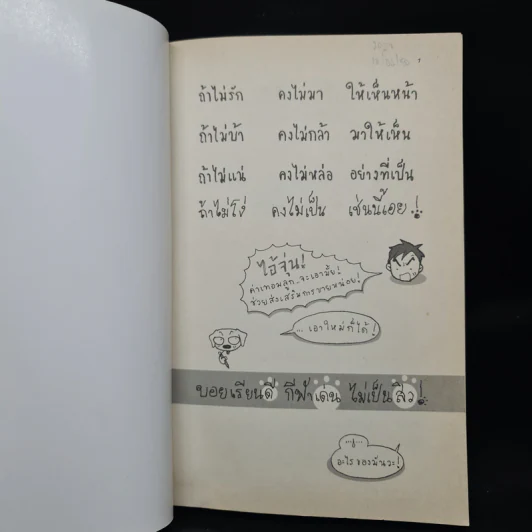 ถ้าไม่รัก คงไม่มา ให้เห็นหน้า
ถ้าไม่บ้า คงไม่กล้า มาให้เห็น
ถ้าไม่แน่ คงไม่หล่อ อย่างที่เป็น
ถ้าไม่โง่ คงไม่เป็น เช่นนี้เอย!
ไอ้จุ่น!
ค่าเทอมลูก..จะเอามั้ย!
ช่วยส่งเสริมการขายหน่อย!
...เอาใหม่ก็ได้!
บอยเรียนดี กีฬาเด่น ไม่เป็นสิว!
อะไรของมันวะ!